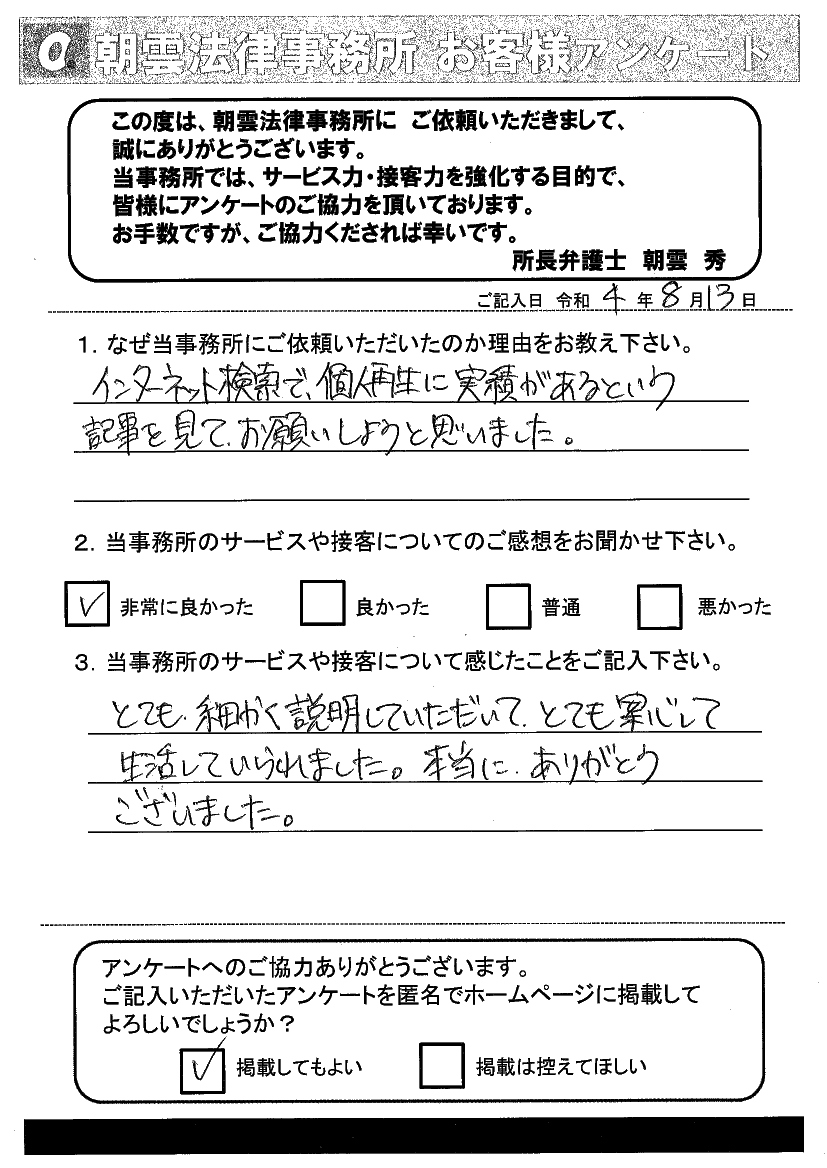 朝雲法律事務所 お客様アンケート
この度は、朝雲法律事務所に ご依頼いただきまして、
誠にありがとうございます。
当事務所では、サービス力・接客力を強化する目的で、
皆様にアンケートのご協力を頂いております。
お手数ですが、ご協力くだされば幸いです。
所長弁護士 朝雲 秀
ご記入日 令和 4 年 8 月 13 日
1. なぜ当事務所にご依頼いただいたのか理由をお教え下さい。
インターネット検索で、個人再生に実績があるという
記事を見て、お願いしようと思いました。
2. 当事務所のサービスや接客についてのご感想をお聞かせ下さい。
✓ 非常に良かった 良かった 普通 悪かった
3. 当事務所のサービスや接客について感じたことをご記入下さい。
とても、細かく説明していただいて、とても案心して
生活していられました。本当に、ありがとう
ございました。
アンケートへのご協力ありがとうございます。
ご記入いただいたアンケートを匿名でホームページに掲載して
よろしいでしょうか？
✓ 掲載してもよい 掲載は控えてほしい